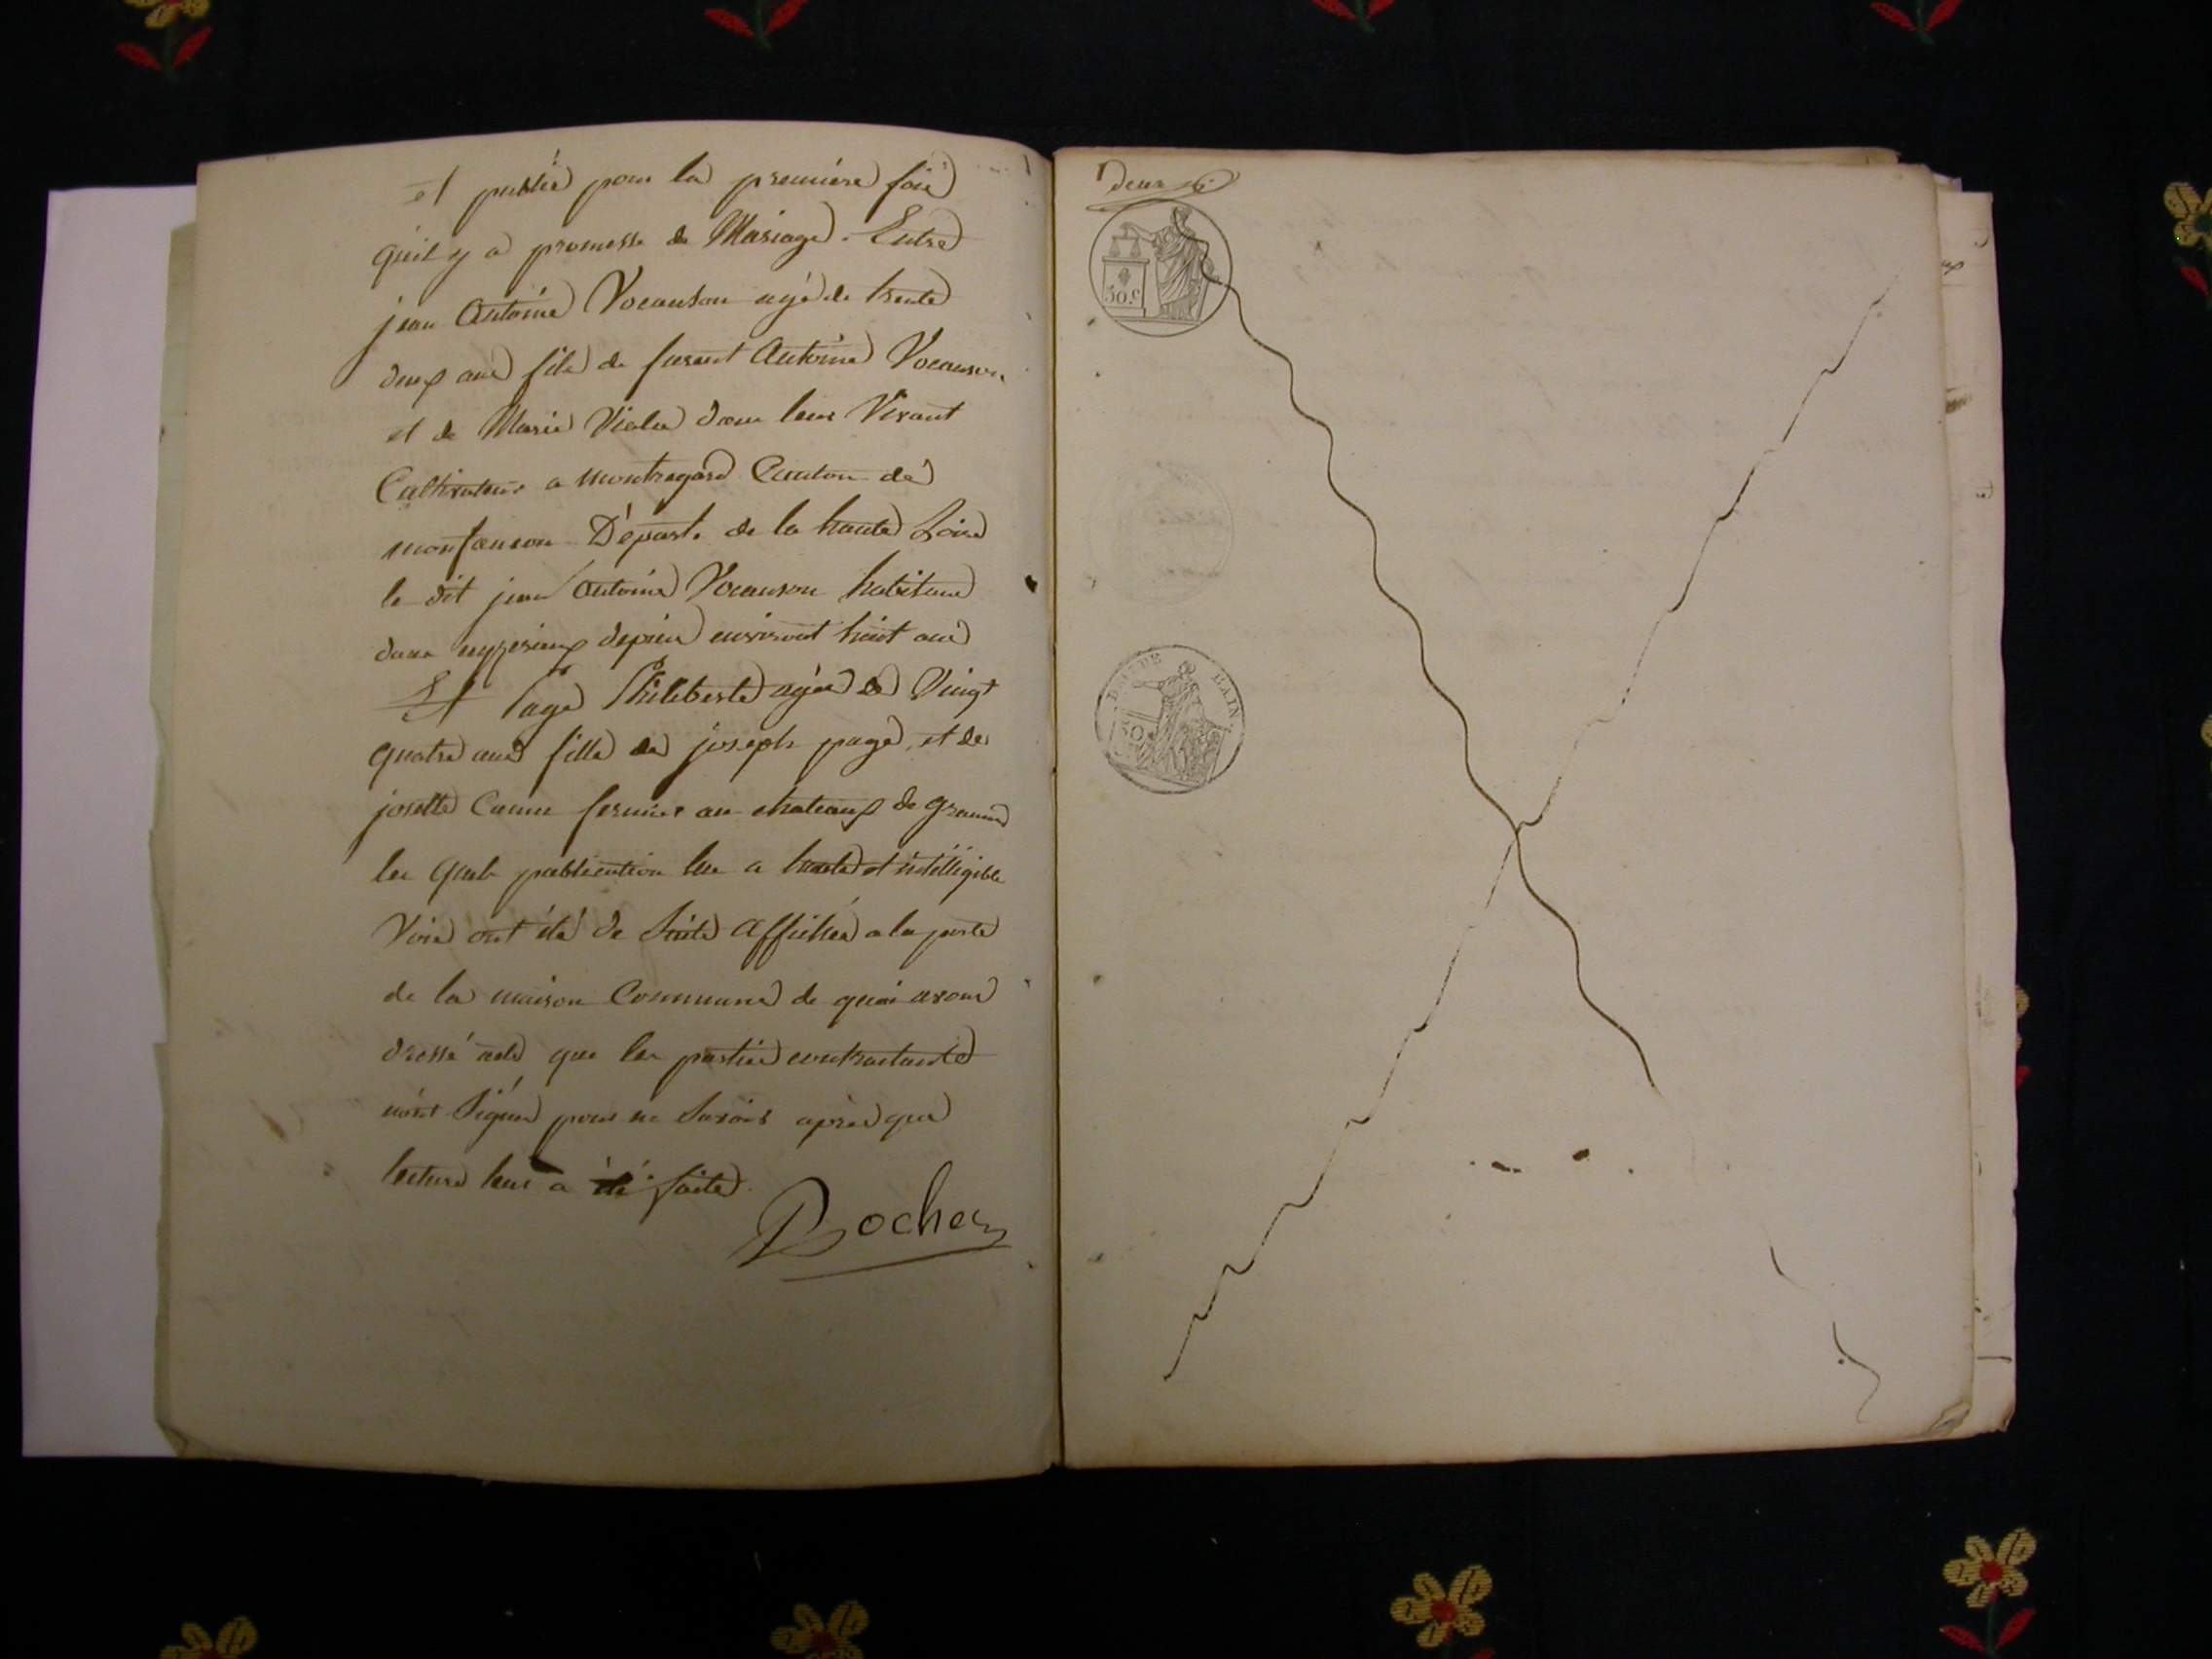 et publié pour la premiére fois
quil y a promesse de Mariage. Entre
jean Antoine Vocanson agé de trente
deux ans fils de furent Antoine Vocanson
et de Marie Vialee dans leur Vivant
Cultivateur a montregard Canton de
monfaucon Départ. de la haute Loire
le dit jean Antoine Vocanson habitant
dans depuis environt huit ans
Et page Philiberte agée de Vingt
quatre ans fille de joseph page, et de
josette fermier au chateaux de
les publication lue a haute et intélligible
Voix ont été de Suite Affichée a la porte
de la maison Commune de quoi avons
dressé acte que les parties contractante
nont Signés pour ne Savoir après que
lecture leur a été faite.
Rocher
deux
50.c
BAIN.
50